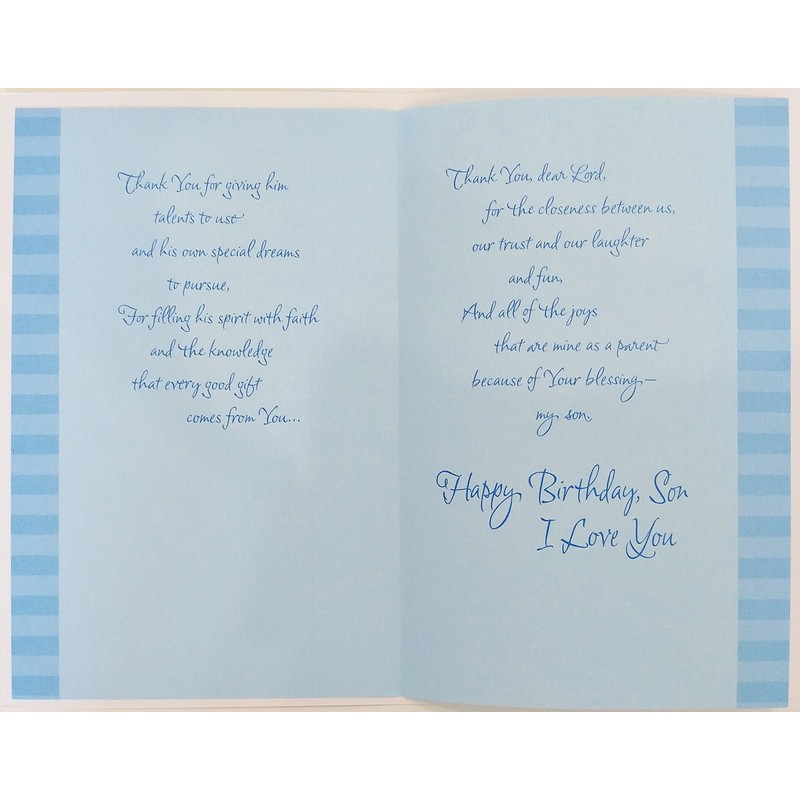 Thank You for giving him
talents to use
and his own special dreams
to pursue,
For filling his spirit with faith
and the knowledge
that every good gift
comes from You...
Thank You, dear Lord,
for the closeness between us,
our trust and our laughter
and fun,
And all of the joys
that are mine as a parent
because of Your blessing—
my son.
Happy Birthday, Son
I Love You